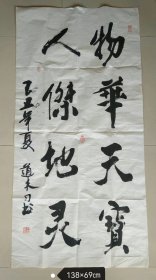 物華天寶
人傑地灵
乙丑年夏
138×69cm